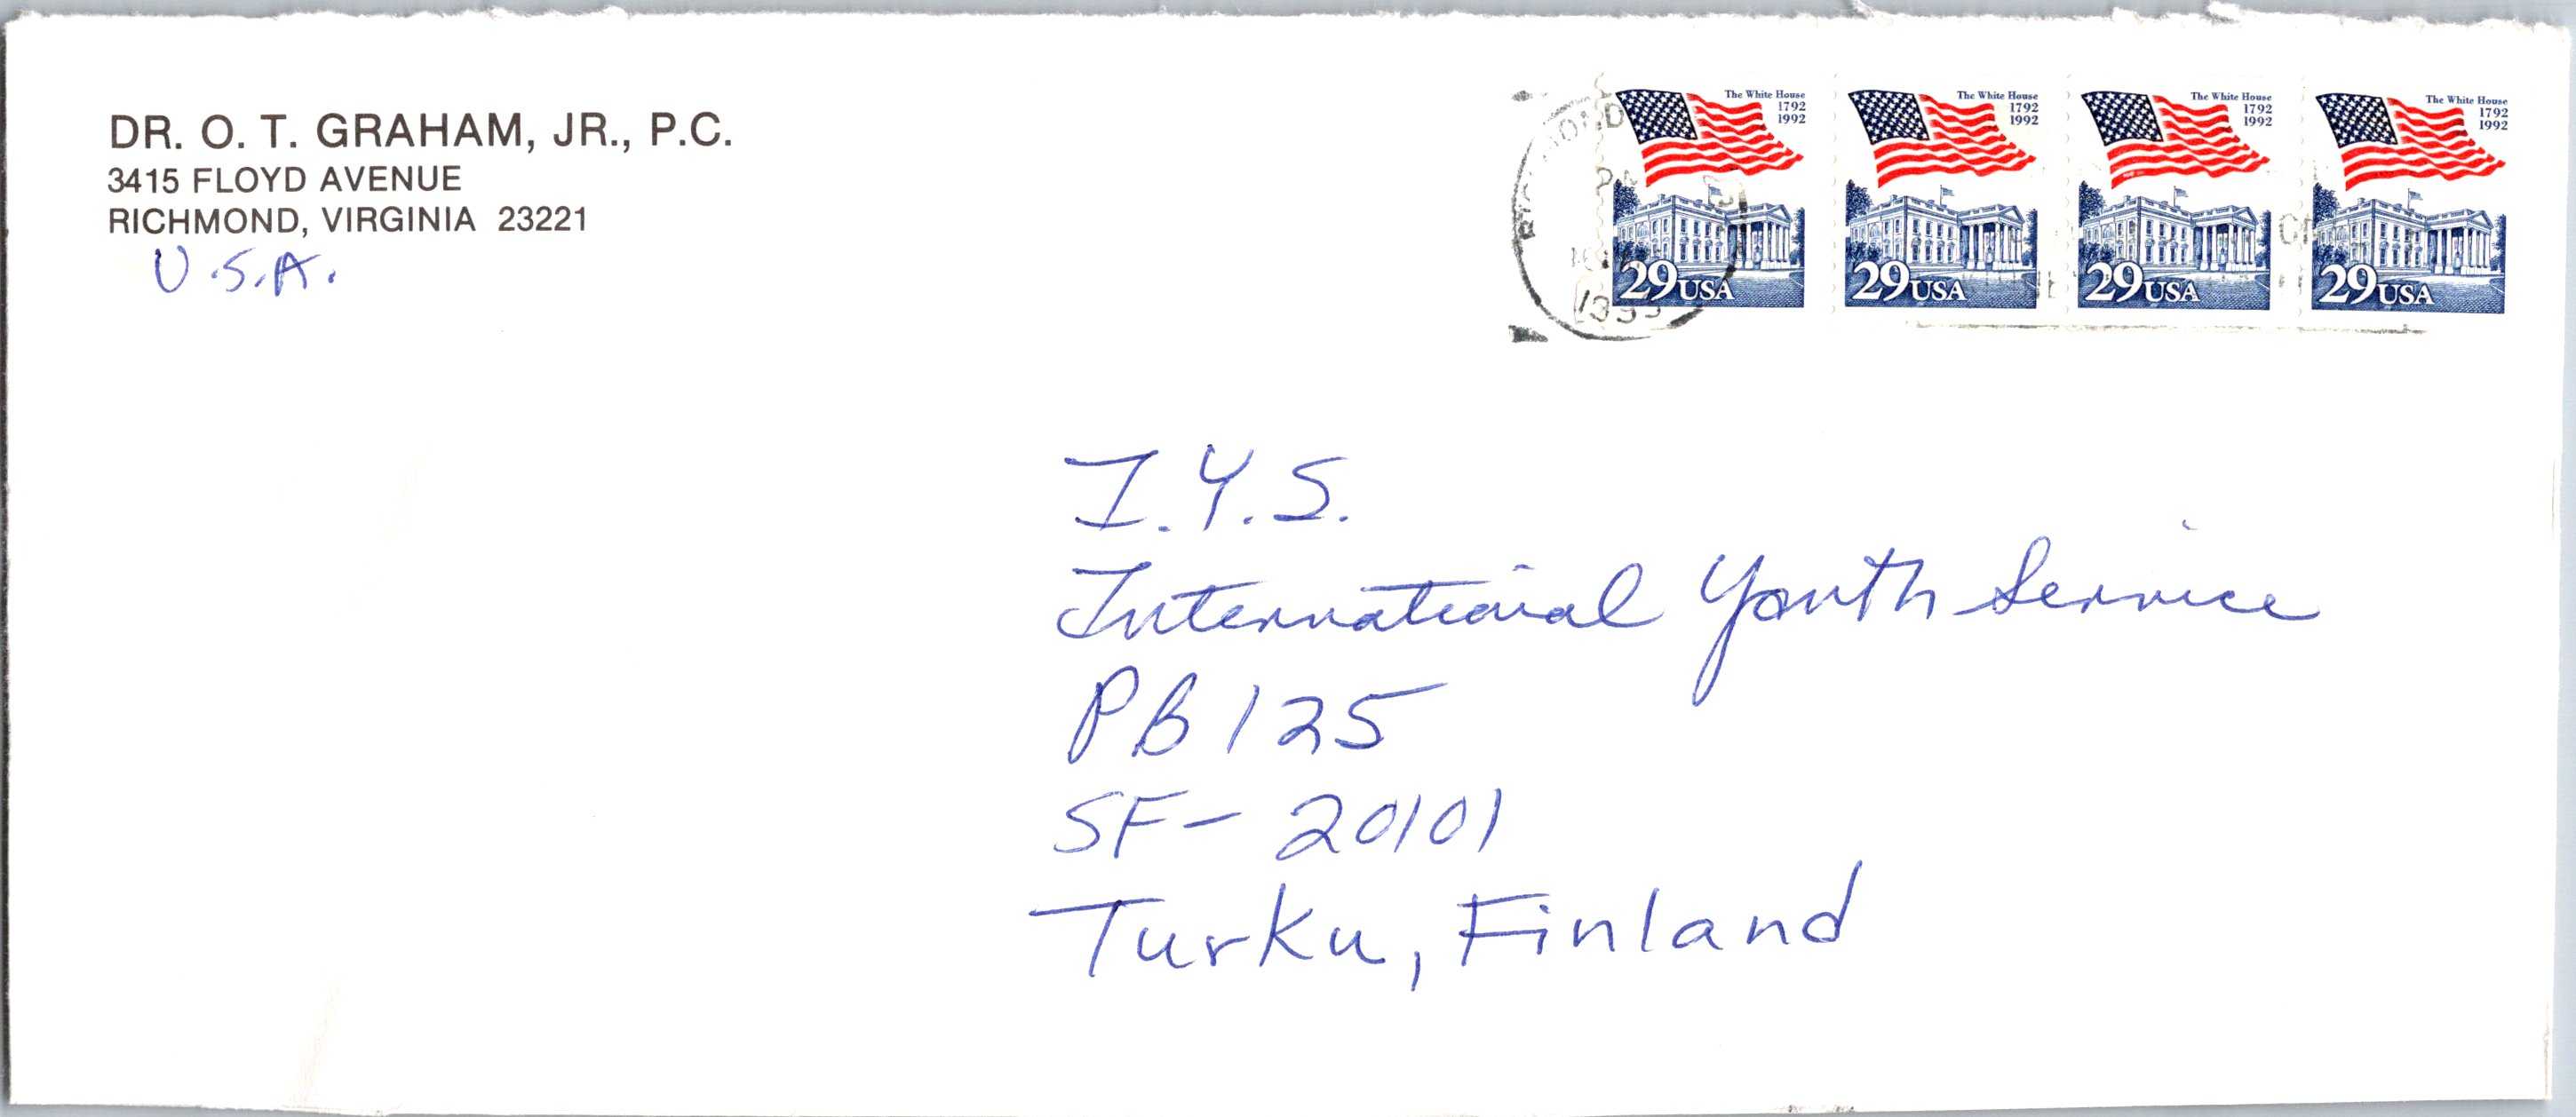 DR. O. T. GRAHAM, JR., P.C.
3415 FLOYD AVENUE
RICHMOND, VIRGINIA 23221
U.S.A.
The White House
1792
1992
29 USA
The White House
1792
1992
29 USA
The White House
1792
1992
29 USA
The White House
1792
1992
29 USA
I.Y.S.
International Youth Service
PB 125
SF- 20101
Turku, Finland